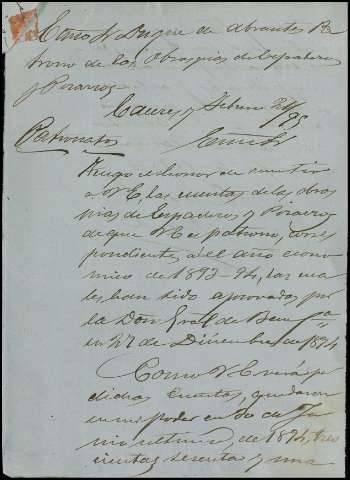 Excmo Sr Duque de Abrantes Pa
trono de las Obras pias de Espaderos
y Pizarros
Caceres y Febrero 24/95
Patronatos
Excmo Sr
Tengo el honor de remitir
a V.E. las cuentas de las obras
pias de Espaderos y Pizarros
de que V.E. es patrono, corres
pondientes al año econo
mico de 1893-94, las cua
les han sido aprobadas por
la Dón Gral de Benefª
en 27 de Diciembre de 1894
Como V.E. verá por
dichas cuentas, quedaron
en mi poder en 30 de Ju
nio ultimo, de 1894, tres
cientas sesenta y una